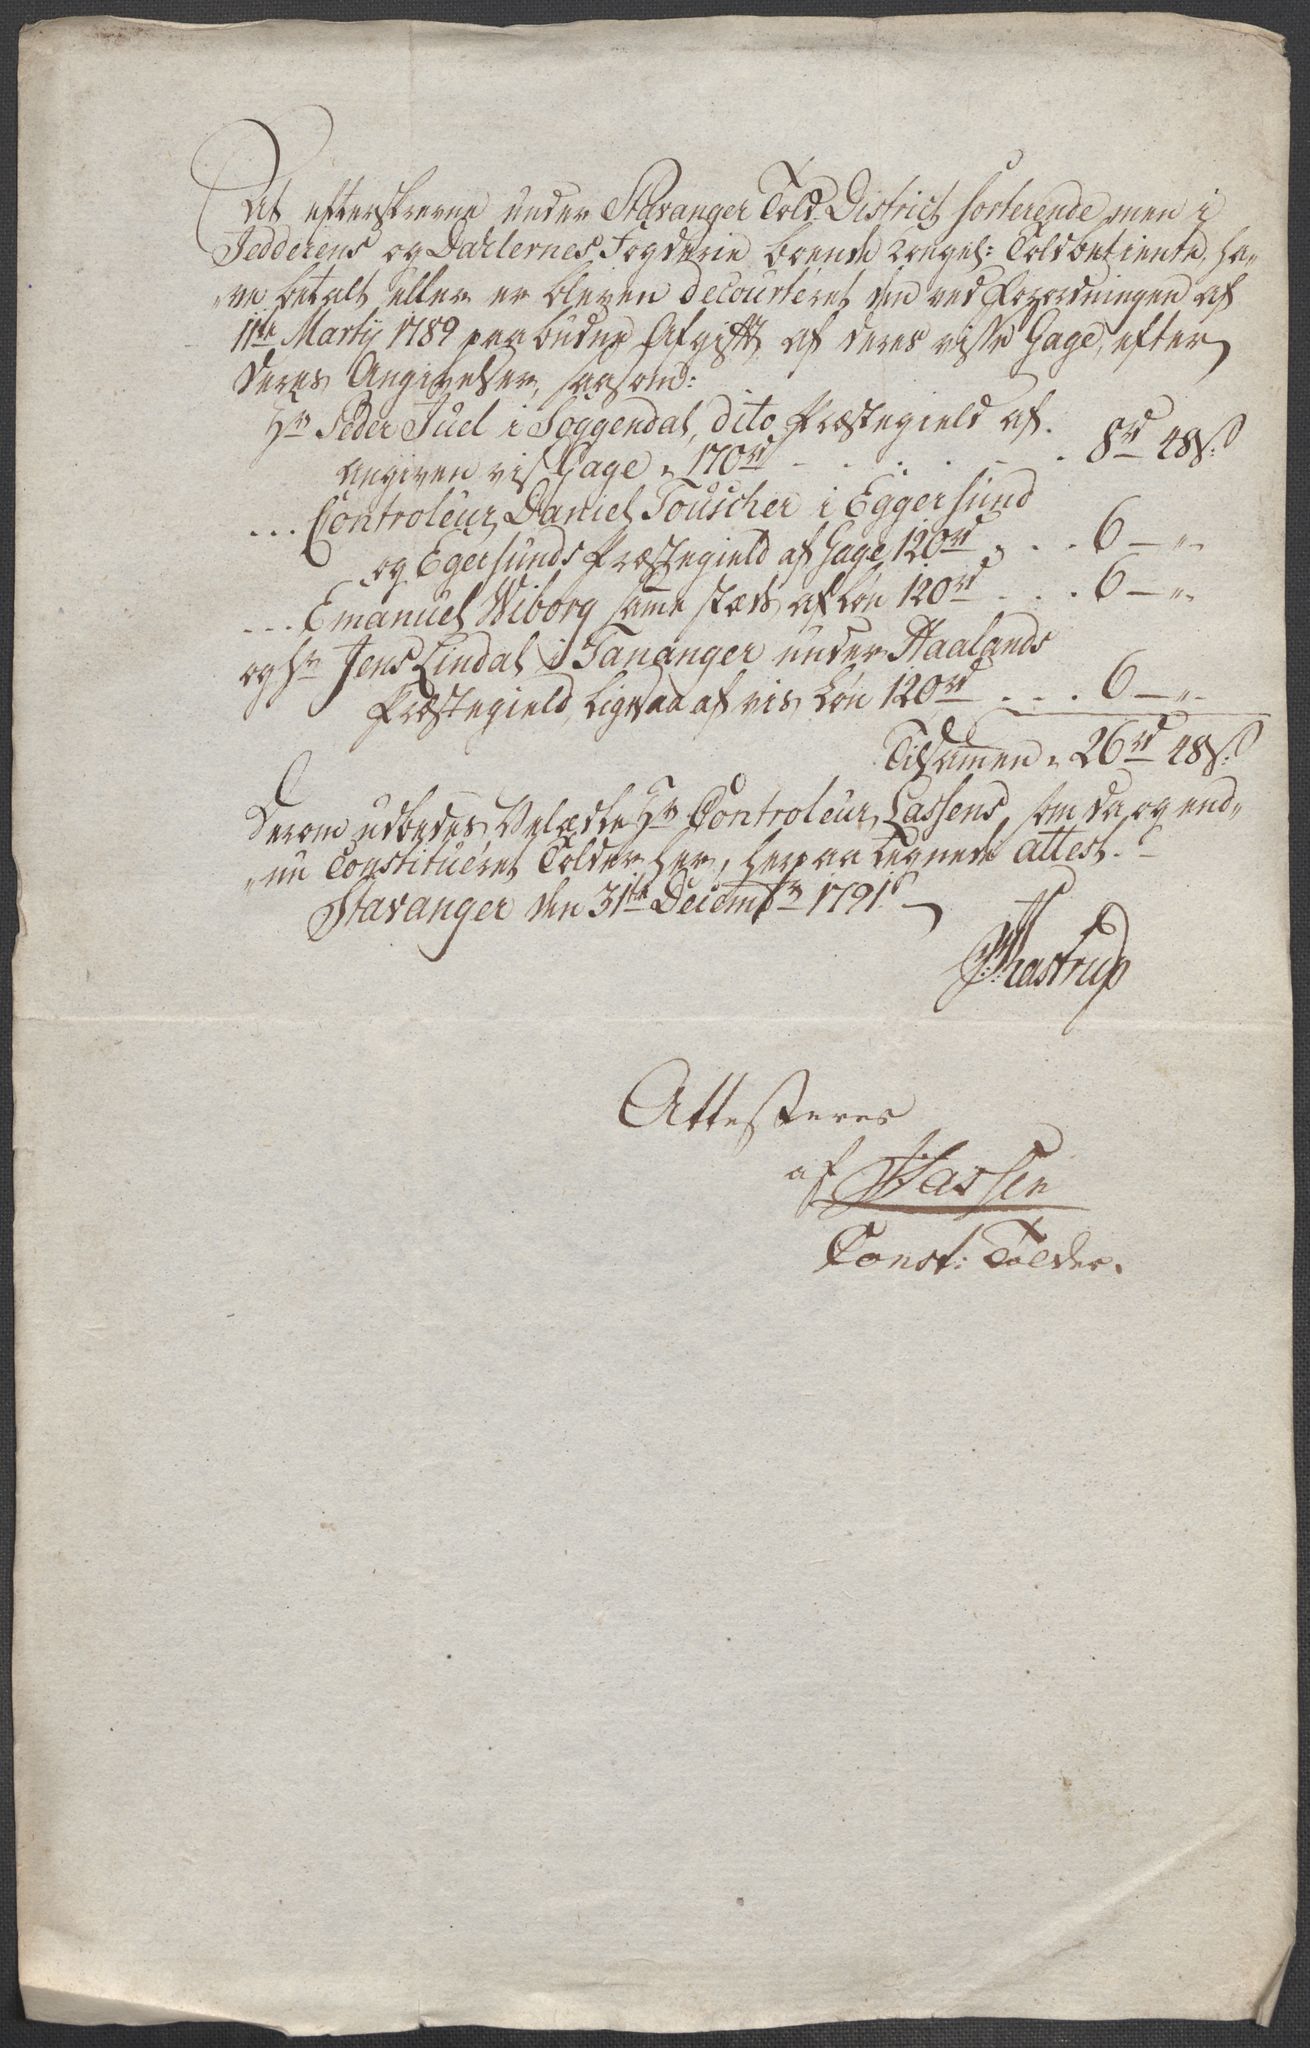 At efterskrevne under Stavanger Told-District sorterende, men i
Jedderens og Dahlernes Fogderie boende Kongel: Toldbetiente, ha-
ve betalt eller er bleven decourteret den ved Forordningen af
11te Martij 1789 paabudne Afgift af deres visse Gage, efter
deres Angivelser, saasom:
Hr Peder Juel i Soggendal, dito Præstegield af
angiven vis Gage, 170rd . . . . . 8rd 48s:
... Controleur Daniel Touscher i Eggersund
og Egersunds Præstegield af Gage 120rd . . . 6 — „-
... Emanuel Wiborg samme stæds af Løn 120rd . . . 6 — „-
og Hr Jens Lindal i Tananger under Haalands
Præstegield, ligesaa af vis Løn 120rd . . . 6 — „-
Tilsammen „ 26rd 48s:
Derom udbedes Velædle Hr Controleur Lassens, som da og end-
nu Constitueret Tolder her, herpaa tegnede Attest.
Stavanger den 31te Decembr 1791
Kastrup
Attesteres
af Lassen
Const: Tolder.